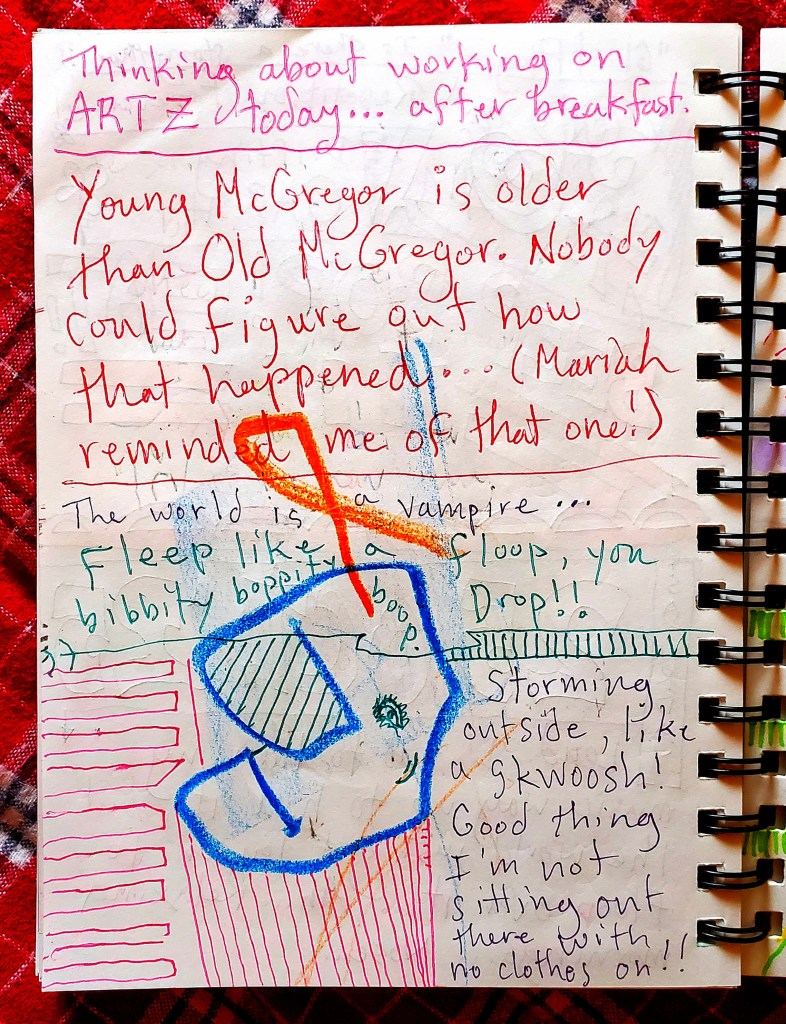 Thinking about working on
ARTZ today... after breakfast.
Young McGregor is older
than Old McGregor. Nobody
could figure out how
that happened... (Mariah
reminded me of that one!)
The world is a vampire...
Fleep like a floop, you
bibbity boppity boop. Drop!!
Storming
outside, like
a gkwoosh!
Good thing
I'm not
sitting out
there with
no clothes on!!